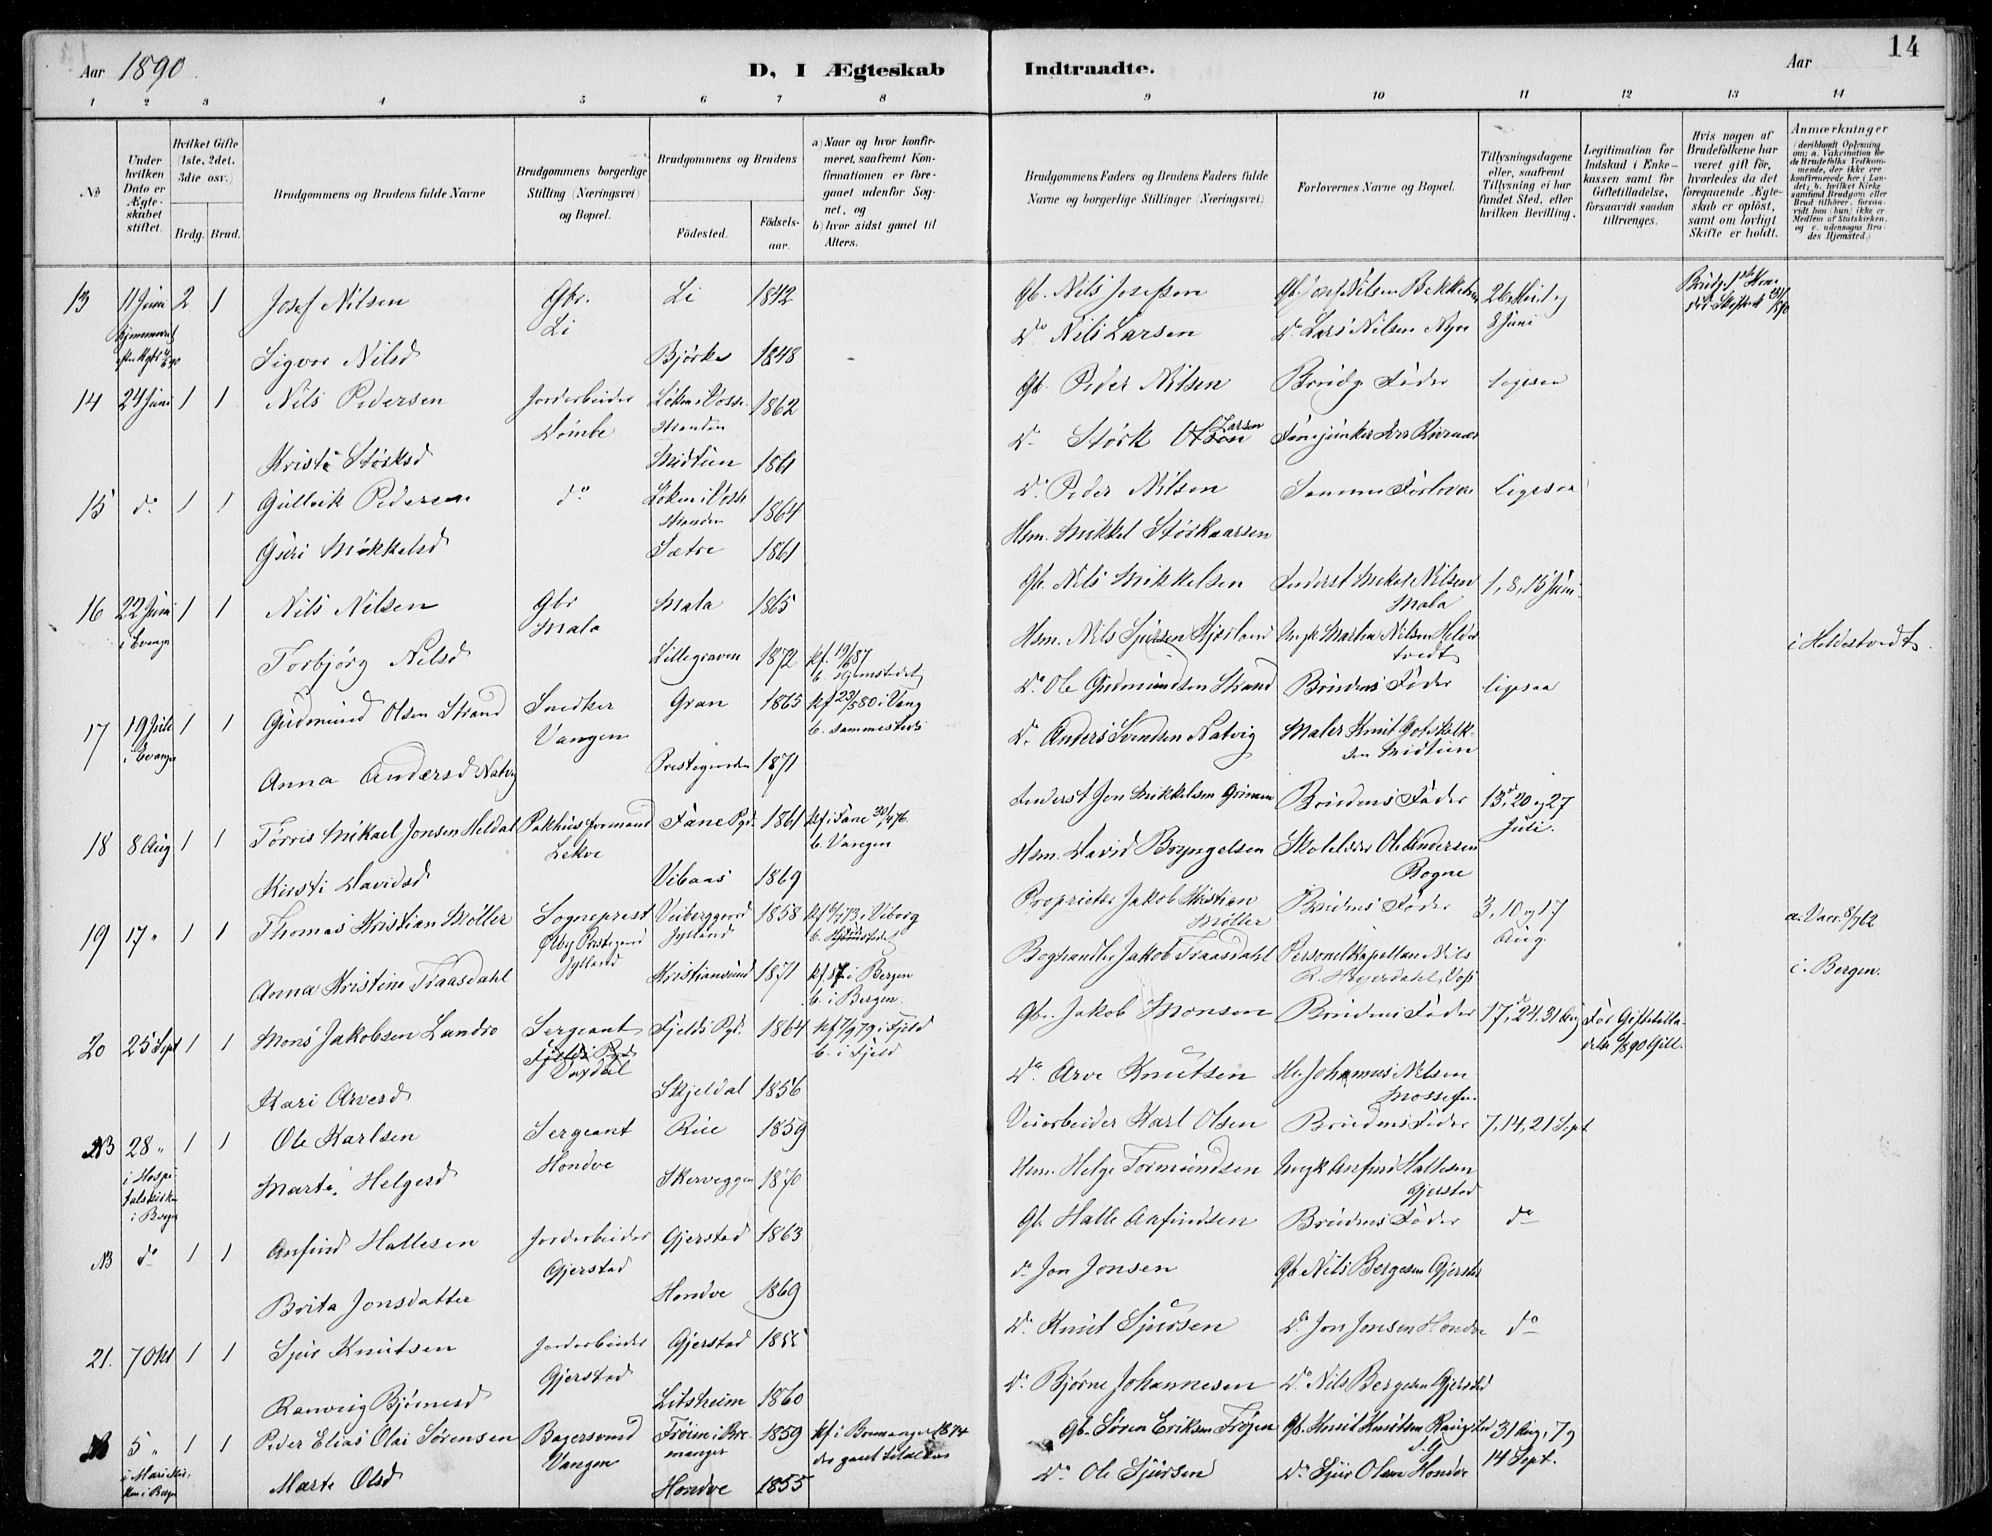 14
Aar 1890
D, I Ægteskab Indtraadte.
Aar
1 2 3 4 5 6 7 8 9 10 11 12 13 14
No
Under hvilken Dato er Ægteskabet stiftet.
Hvilket Gifte (1ste, 2det, 3die osv.)
Brdg. Brud.
Brudgommens og Brudens fulde Navne
Brudgommens borgerlige Stilling (Næringsvei) og Bopæl.
Brudgommens og Brudens
Födested.
Födselsaar.
a) Naar og hvor konfirmeret, saafremt Konfirmationen er foregaaet udenfor Sognet, og
b) hvor sidst gaaet til Alters.
Brudgommens Faders og Brudens Faders fulde Navne og borgerlige Stillinger (Næringsvei)
Forlovernes Navne og Bopæl.
Tillysningsdagene eller, saafremt Tillysning ei har fundet Sted, efter hvilken Bevilling.
Legitimation for Indskud i Enkekassen samt for Giftetilladelse, forsaavidt saadan tiltrænges.
Hvis nogen af Brudefolkene har været gift för, hvorledes da det foregaaende Ægteskab er oplöst, samt om lovligt Skifte er holdt.
Anmærkninger (deriblandt Oplysning om: a. Vakcination for de Brudefolks Vedkommende, der ikke ere konfirmerede her i Landet; b. hvilket Kirkesamfund Brudgom eller Brud tilhörer, forsaavidt han (hun) ikke er Medlem af Statskirken, og c. udensogns Brudes Hjemsted.)
13 11 Juni 2 1 Josef Nilsen Gbr. Li Li 1842 Gb. Nils Josefsen Nilsen Bekkelien 26 Mai og 8 Juni
Sigvor Nilsd Bjørke 1848 Do Nils Larsen Do Lars Nilsen
14 24 Juni 1 1 Nils Pedersen Jordarbeider Dømbe Løken i Vossestranden 1862 Gb. Peder Nilsen Brudg Fader ligesaa
Kristi Størksd Midtun 1861 Do Størk Larsen Fanejunker
15 do 1 1 Gulleik Pedersen do Løken i Vossestranden 1864 Do Peder Nilsen Samme Forlovere ligesaa
Guri Mikkelsd Sætre 1861 Hsm. Mikkel Størkaarsen
16 22 Juni i Evanger 1 1 Nils Nilsen Gbr Mala Mala 1865 Gb. Nils Mikkelsen Inderst Mikel Nilsen Mala 1, 8, 15 Juni
Torbjörg Nilsd Lillegraven 1872 kf. 19/6 87 b. Hjemstedet Hsm. Nils Sjursen Kjærland Ungk Martin Nilsen Heldestvedt i Heldestvedt
17 19 Juli i Evanger 1 1 Gudmund Olsen Strand Snedker Vangen Gran 1865 kf 23/5 80 i Vang b. sammesteds Do Ole Gudmundsen Strand Brudens Fader ligesaa
Anna Andersd Natvig Prestegarden 1871 Do Anders Svendsen Natvig Maler Knut Gotskalksen Midtun
18 8 Aug 1 1 Tørris Mikael Jonsen Heldal Pakhusformand Lekve Fane Pgd. 1861 kf i Fane 30/4 76 b. Vangen Inderst Jon Mikkelsen Grimen Brudens Fader 13, 20 og 27 Juli.
Kristi Davidsd Vibaas 1869 Hsm. David Brynjelsen Skolelærer Ole Andersen Rogne
19 17 " 1 1 Thomas Kristian Møller Sogneprest Ølby Prestegaard Jylland Jylland 1858 kf 73 i Viborg Proprietær Jakob Kristian Møller Brudens Fader 3, 10 og 17 Aug. a. Vacc. 8/7 62
Anna Kristine Traasdahl Kristiansund 1871 kf. 87 i Bergen b. i Bergen. Boghandler Jakob Traasdahl Personelkapellan Nils R. Hegerdahl, Voss c. Bergen.
20 25 Sept 1 1 Mons Jakobsen Landro Sergeant Vaxdal Fjelds Pgd. 1864 kf 79 i Fjeld b. i Fjeld Gb. Jakob Monsen Brudens Fader 17, 24, 31 Aug For Giftetilladelse
Kari Arvesd Skjeldal 1856 Do Arve Knutsen Johannes Nilsen
NB 28 " i Hospitalskirken i Bergen 1 1 Ole Karlsen Sergeant Hondve Rue 1859 Veiarbeider Karl Olsen Brudens Fader 7, 14, 21 Sept
Marta Helgesd Skerveggen 1870 Hsm. Helge Tormundsen Ungk Anfind Hallesen Gjerstad
NB do 1 1 Anfind Hallesen Jordarbeider Gjerstad Gjerstad 1863 Gb. Halle Anfindsen Brudens Fader do
Brita Jonsdatter Hondve 1869 do Jon Jonsen Gb. Nils Bergesen Gjerstad
21. 7 Okt 1 1 Sjur Knutsen Jordarbeider Gjerstad Gjerstad Do Knut Sjursen Do Jon Jonsen Hondve do
Ranveig Bjørnesd Litsheim 1860 Do Bjørne Johannesen Do Nils Bergesen Gjerstad
5 " i Mariekirken i Bergen 1 1 Peder Elias Olai Sørensen Bagersvend Vangen Frøien i Bremanger 1859 kf i Bremanger 1874 der gaaet til alters Gb. Søren Eriksen Frøjen Gb. Knut Knutsen 31 Aug, 7 og 14 Sept.
Marte Olsd Hondve 1855 Do Ole Sjursen Do Sjur Olsen Hondve